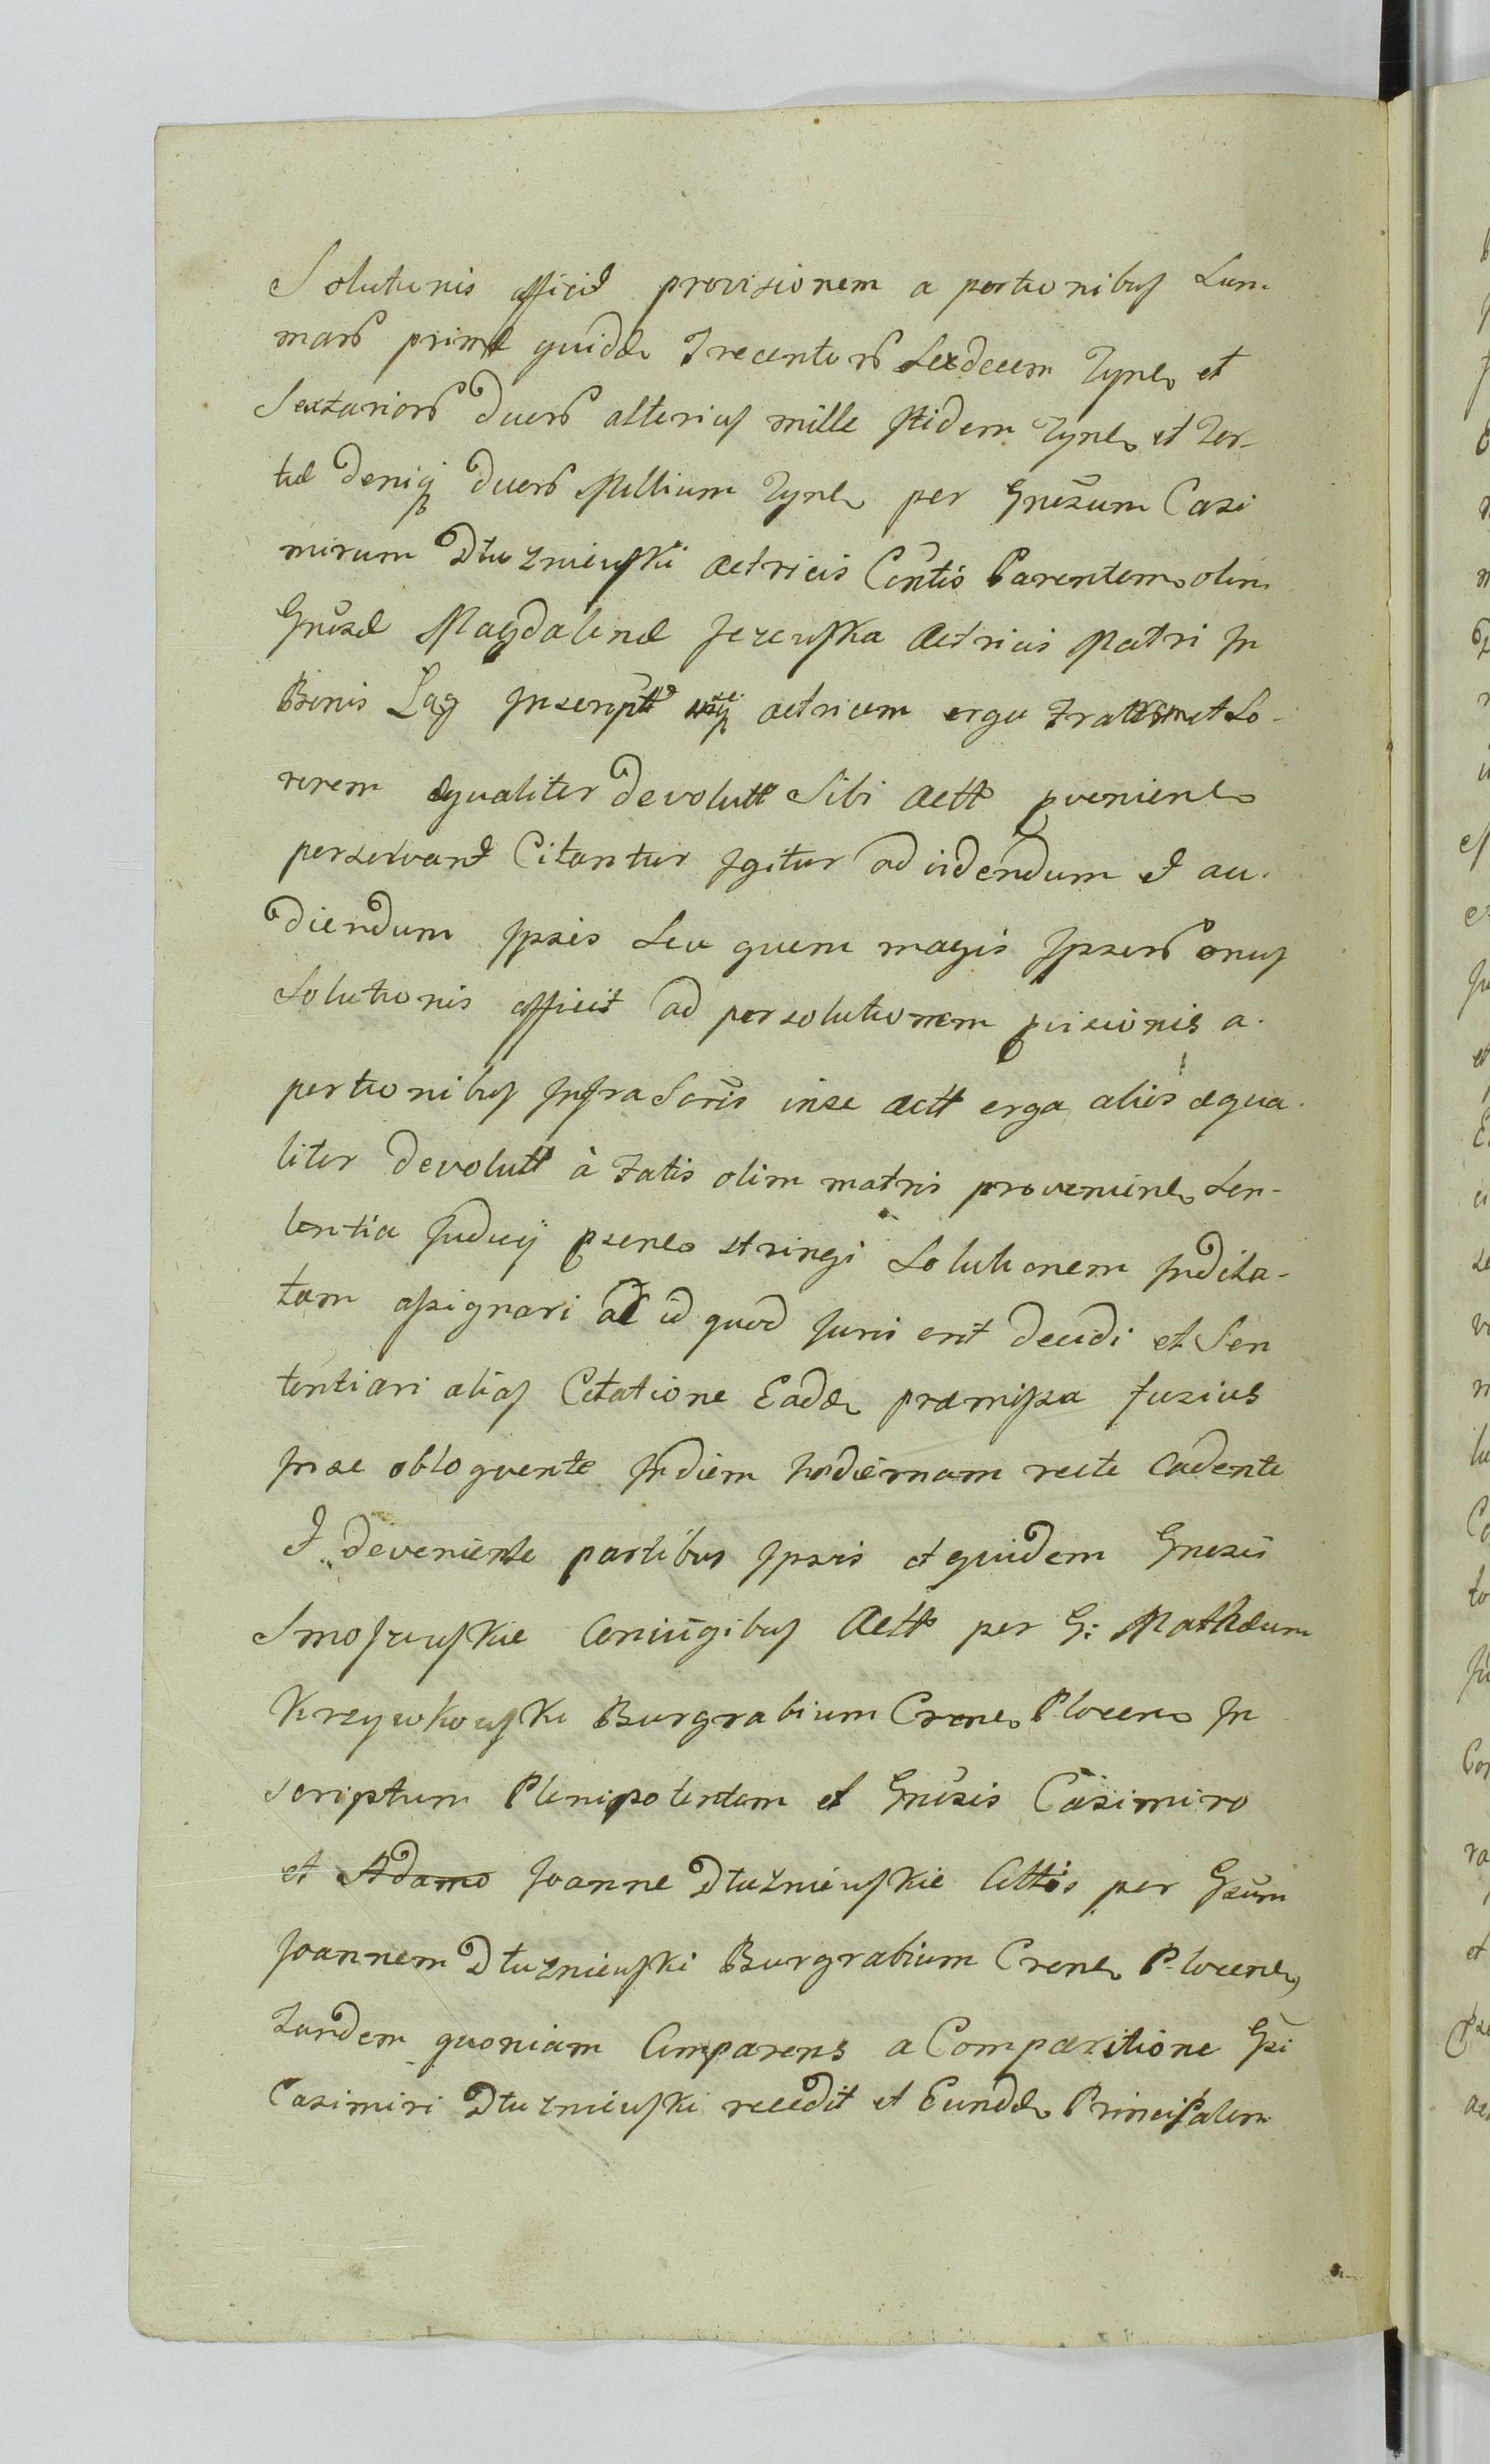 Solutionis afficit provisionem a portionibus Sum
marū primæ quidē Trecentorū Sexdecem Tynf et
Sextariorū duorū alterius mille itidem Tynf et Ter-
tiæ deniq duorū Millium Tynf per Gnosum Casi
mirum Dłużniewski actricis Contis Parentem olim
Gnosæ Magdalenæ Jezewska Actricis Matri in
Binis Inscript actricem erga Fratrem et So-
rorem æqualiter devolutt Sibi Actt pvenienes
perservant Citantur Igitur ad videndum et au-
diendum Ipsis Seu quem magis Ipsorū onus
Solutionis afficit ad persolutionem pvisionis a
portionibus Infra Scris inse actt erga alios æqua
liter devolutt à Fatis olim matris provenienes Sen-
tentia Judicy psenes stringi Solutionem Indila-
tam assignari ac id quod Juris erit decidi et Sen
tentiari alias Citatione Eadē præmissa fusius
In se obloquente In diem hodiernam recte cadente
et deveniente partibus Ipsis et quidem Gnosis
Smoszewskie Coniugibus Actt per G: Mathæum
Krzywkowski Burgrabium Crenes Plocens In
scriptum Plenipotentem et Gnosis Casimiro
et Adamo Joanne Dłużniewskie Cittis per Gsum
Joannem Dłużniewski Burgrabium Crenes Plocens
Tandem quoniam Comparens a Comparitione Gsi
Casimiri Dłużniewski recedit et Eundē Principalem